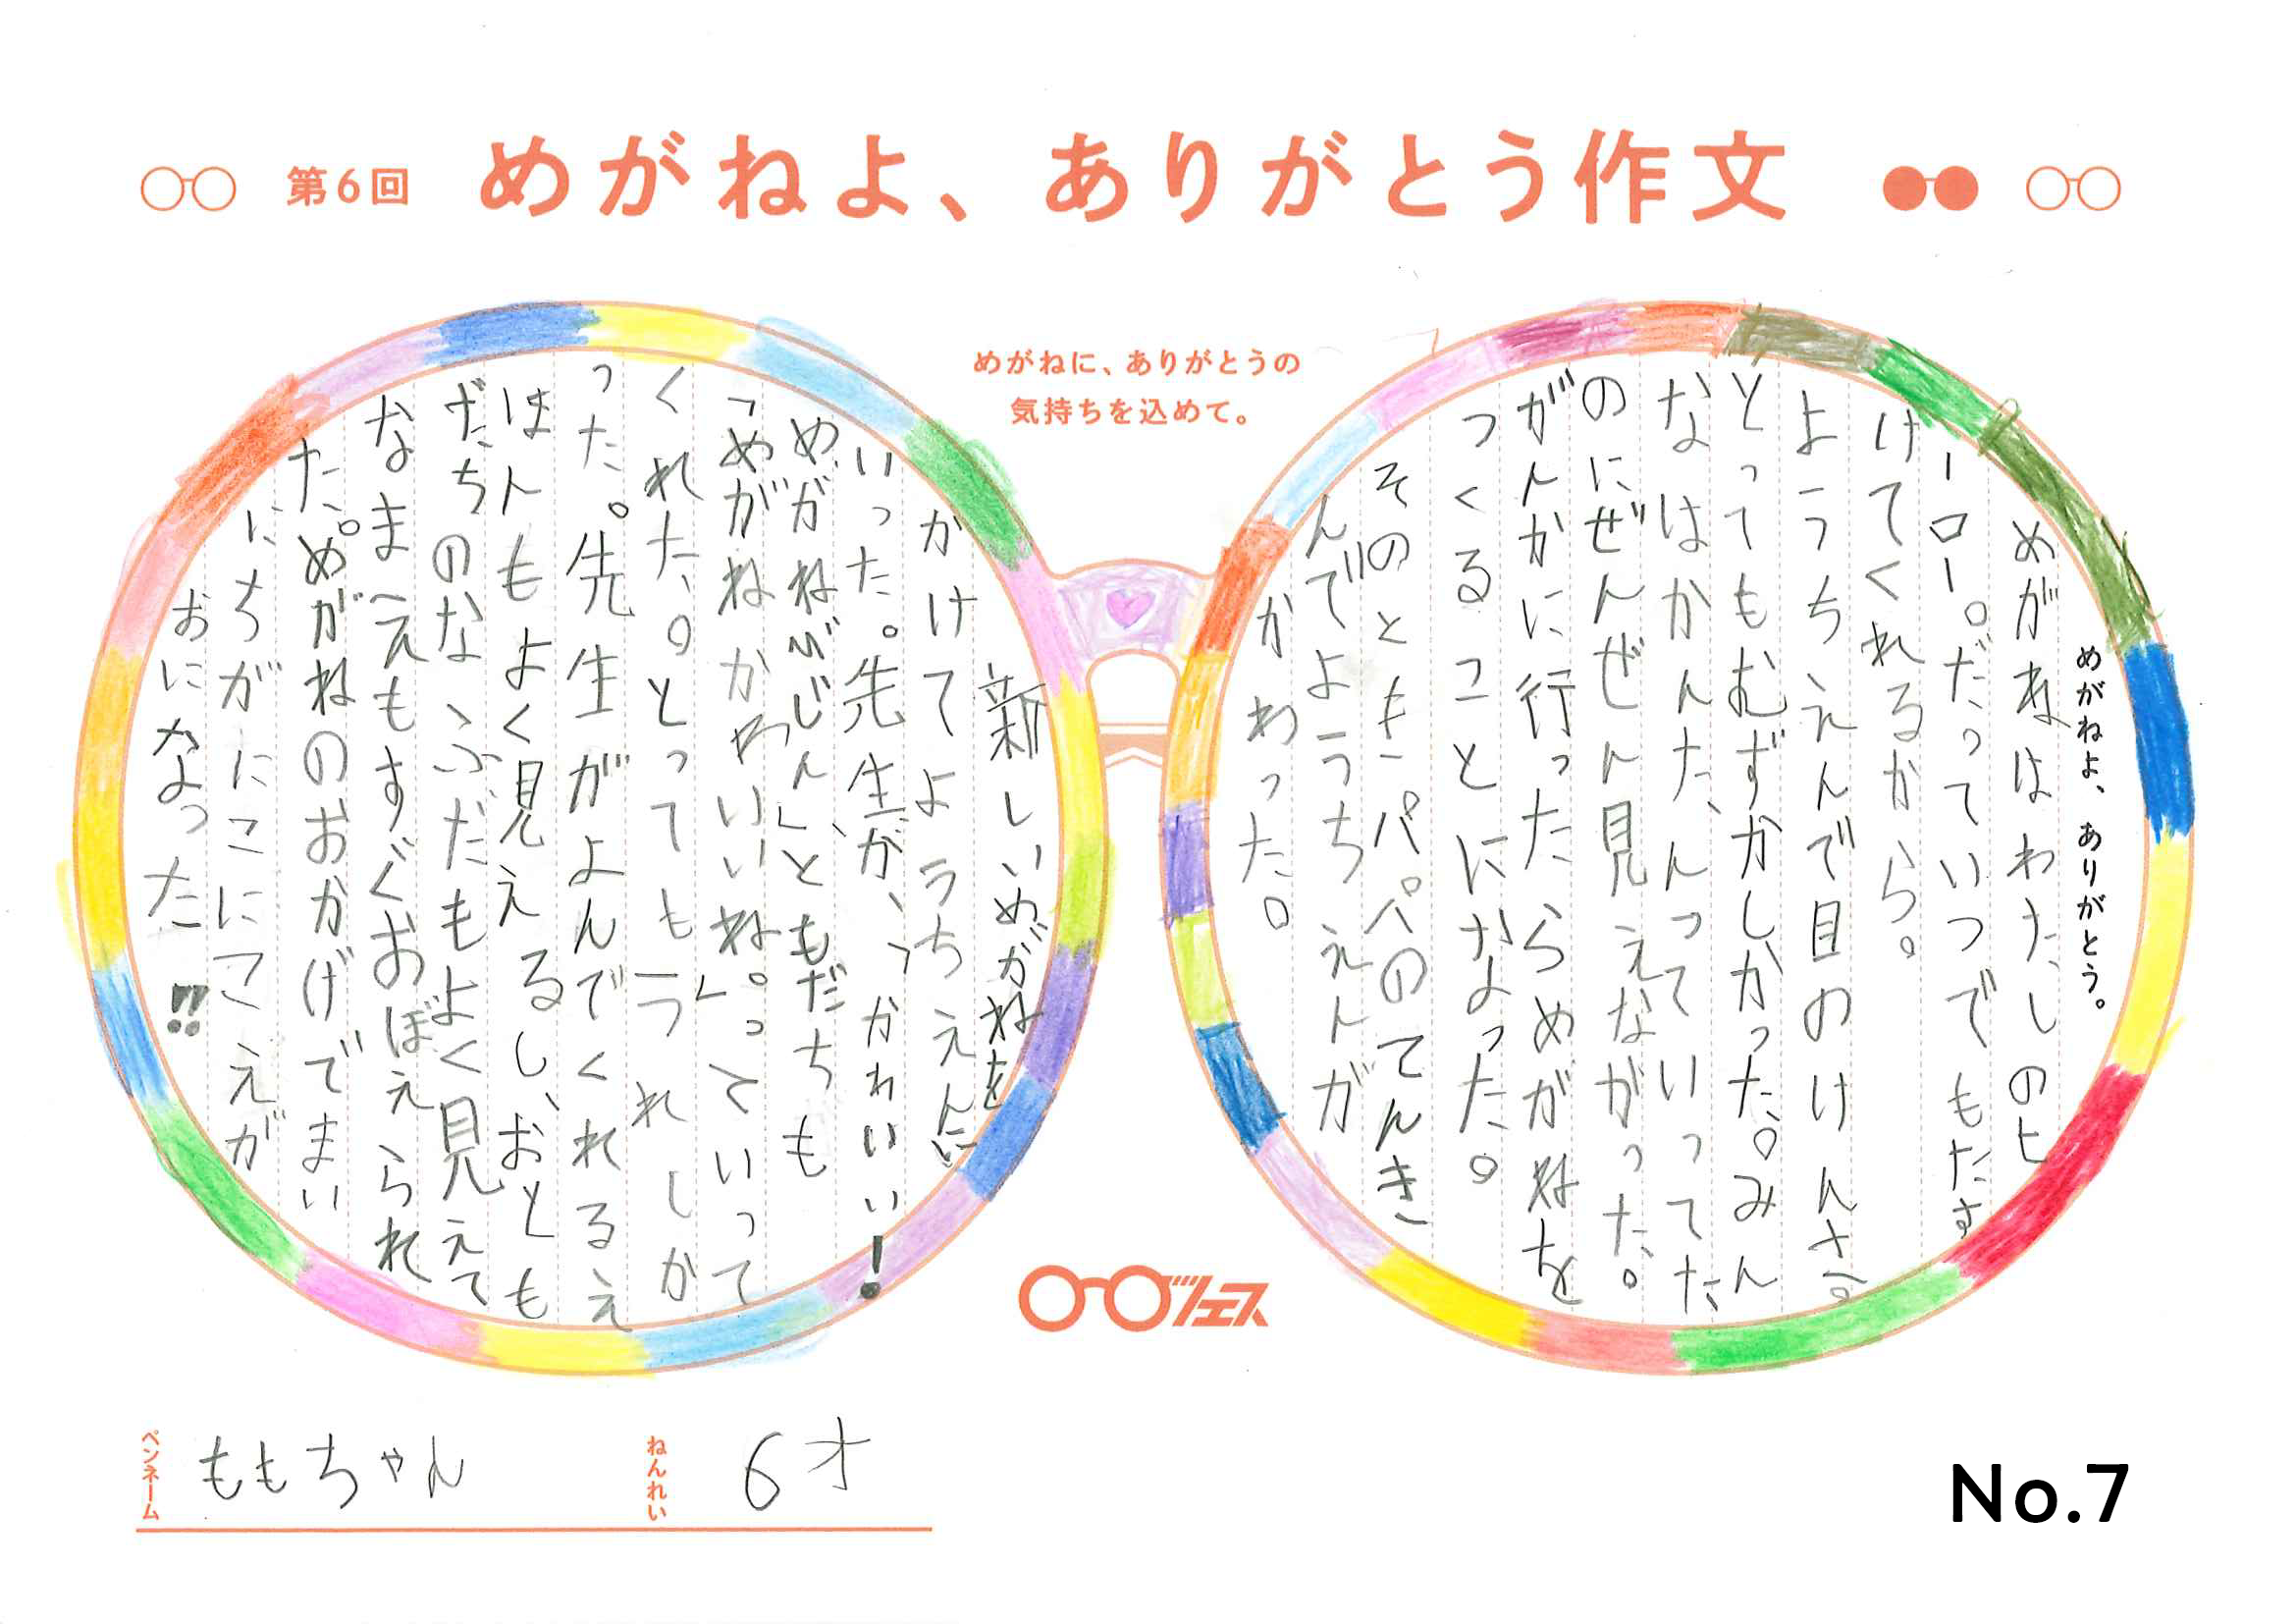 第6回 めがねよ、ありがとう作文
めがねに、ありがとうの
気持ちを込めて。
めがねよ、ありがとう。
めがねはわたしのヒ
ーロー。だっていつでもたす
けてくれるから。
ようちえんで目のけんさ
とってもむずかしかった。みん
なはかんたんっていってた
のにぜんぜん見えながった。
がんかに行ったらめがねを
つくることになった。
そのときパパのてんき
んでようちえんが
かわった。
新しいめがねを
かけてようちえんに
いった。先生が、「かわいい!
めがねびじん」ともだちも
「めがねかわいいね。」っていって
くれた。とってもうれしか
った。先生がよんでくれるえ
ほんもよく見えるし、おとも
だちのなふだもよく見えて
なまえもすぐおぼえられ
た。めがねのおかげでまい
にちがにこにこえが
おになった!!
ツフェス
ペンネーム ももちゃん
ねんれい 6才
No.7